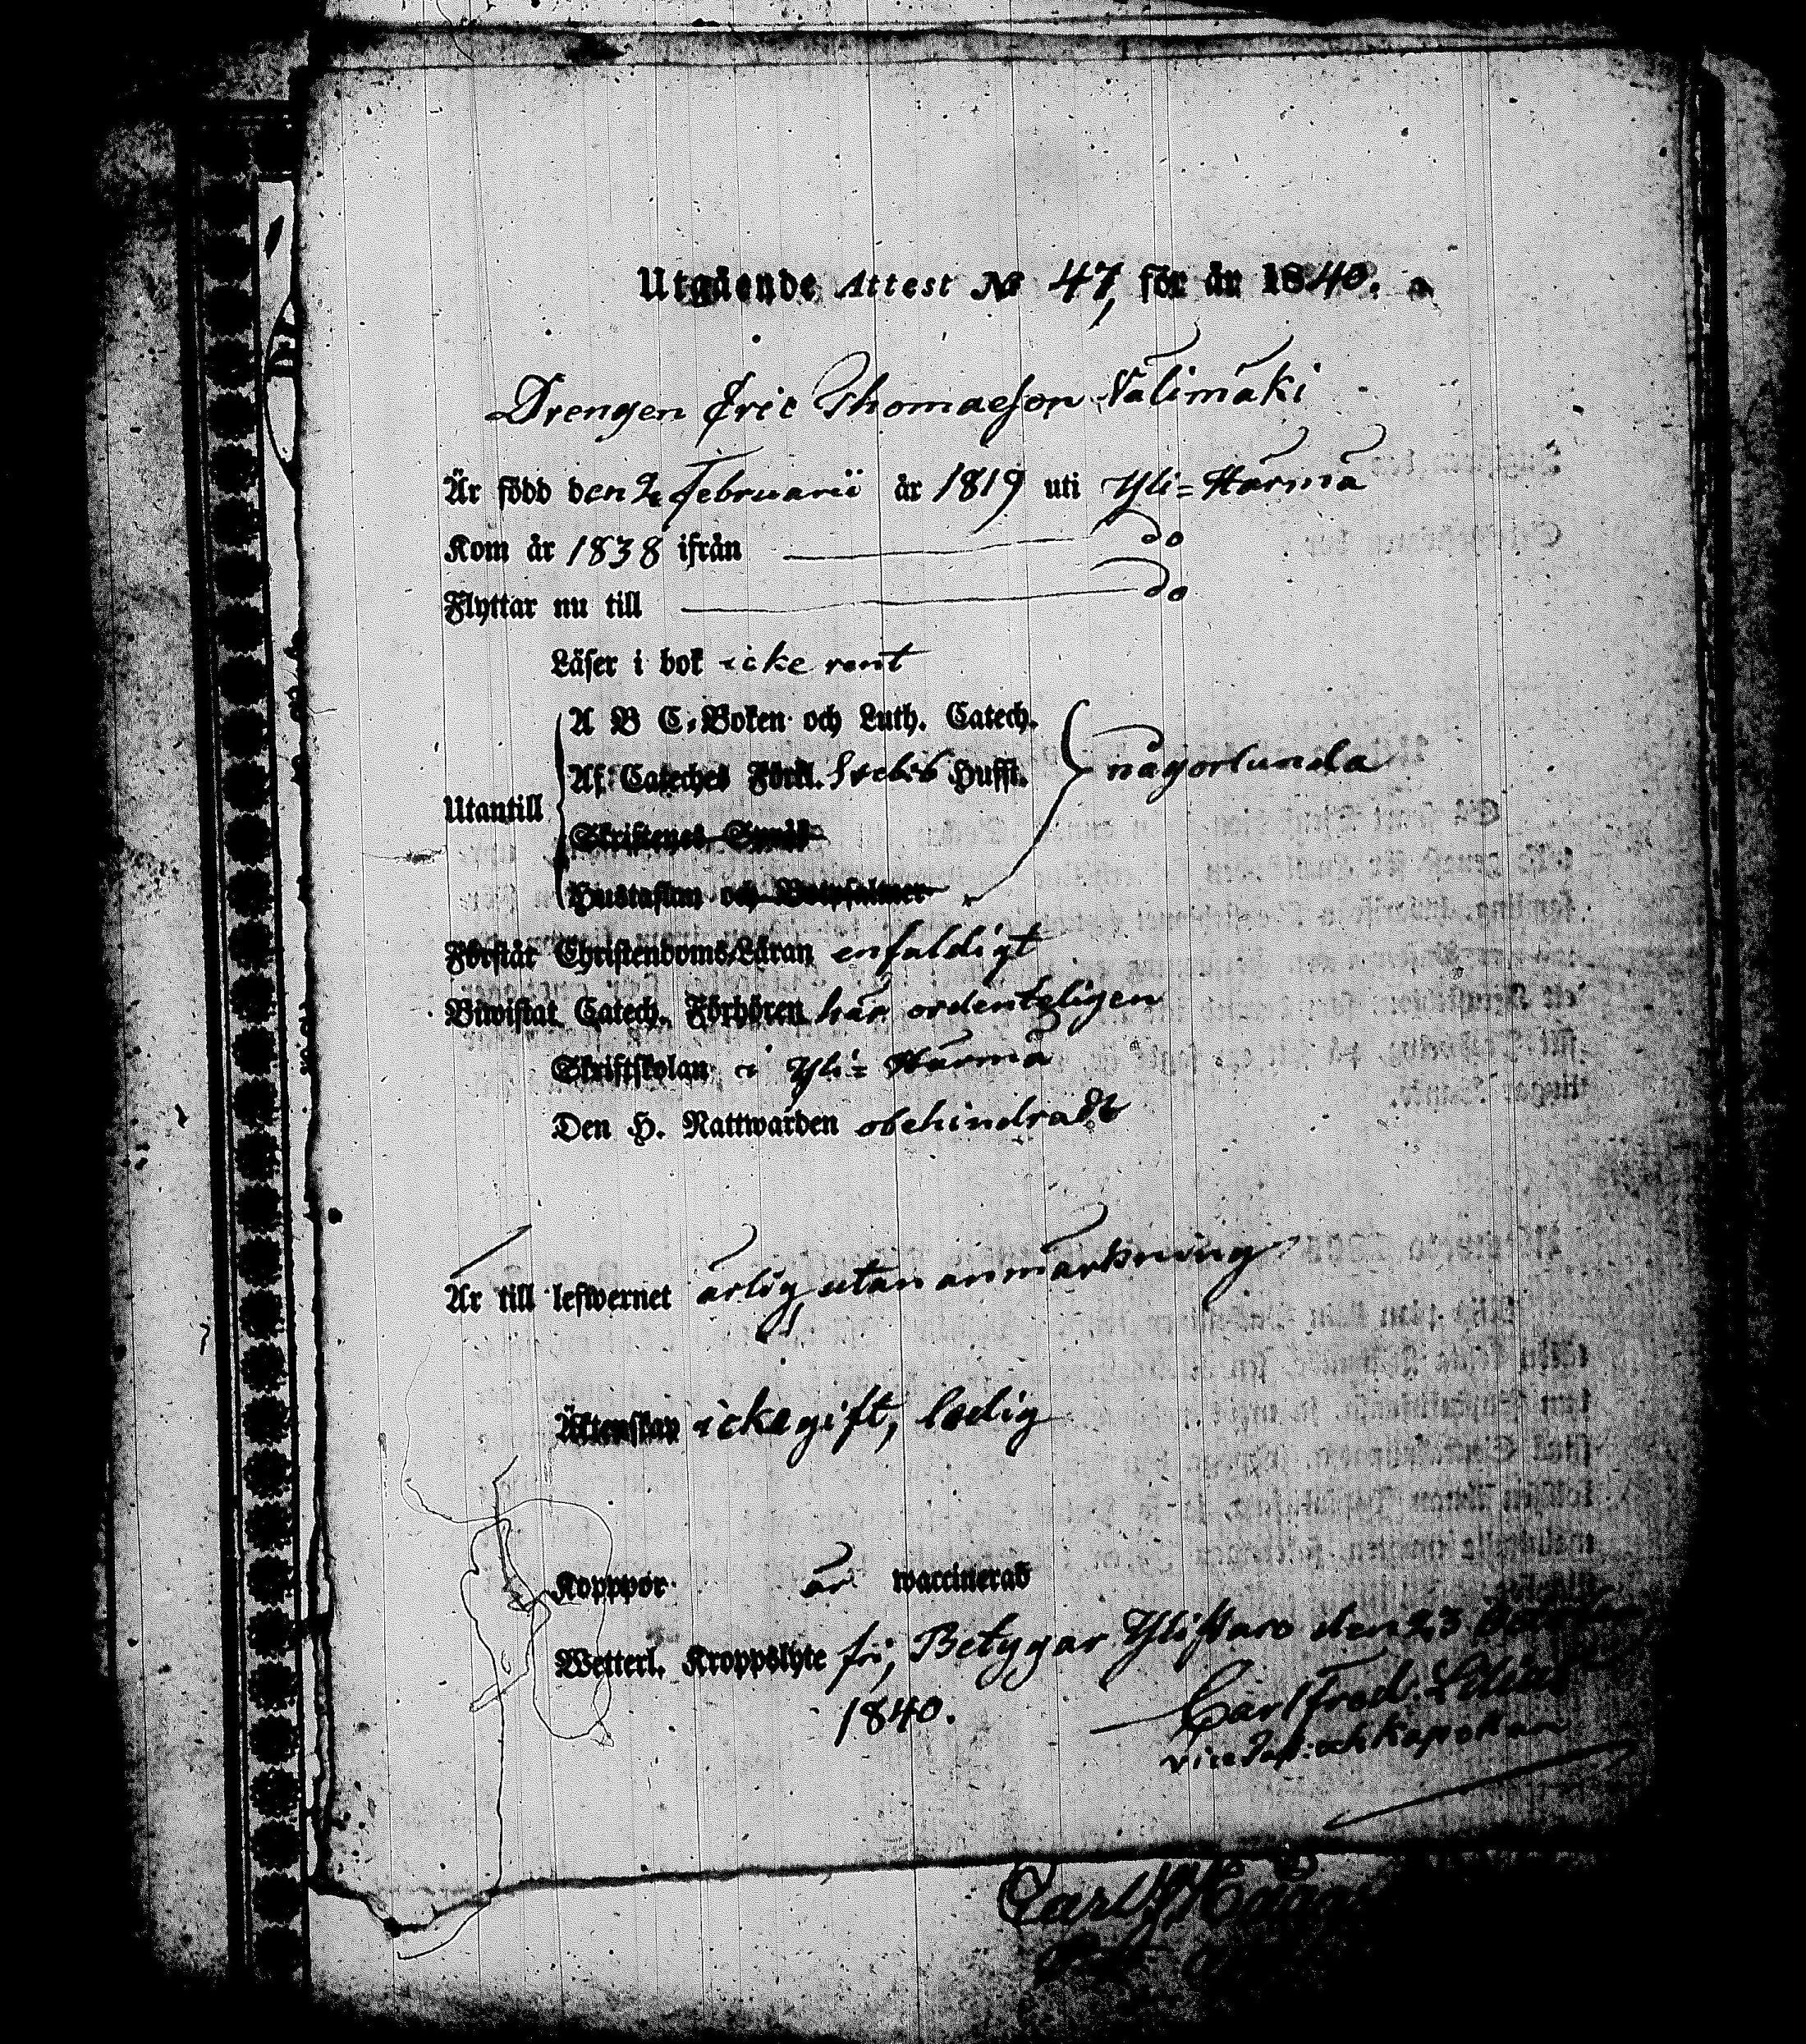 Utgående Attest No 47, för år 1840.
Drengen Eric Thomaeson Välimäki
Är född den 2 Februarii år 1819 uti Yli=Härmä
Kom år 1838 ifrån do
Flyttar nu till do
Läser i bok icke rent
A B C-Boken och Luth. Catech.
Af Cateches Förkl. Svebel. Hufst. någorlunda
Utantill
Skriftenes Språk
Hustaflan och Botpsalmer
Förstår Christendoms-Läran enfaldigt
Biwistat Catech. Förhören här ordenteligen
Skriftskolan i Yli=Härmä
Den H. Nattwarden obehindradt
Är till lefwernet ärlig utan anmärkning
Äktenskap icke gift, ledig
Kopppor är waccinerad
Wetterl. Kroppslyte fri, Betygar Ylistaro den 23 October
1840. Carl Fred.
vice Past: och Kapellan
Carl